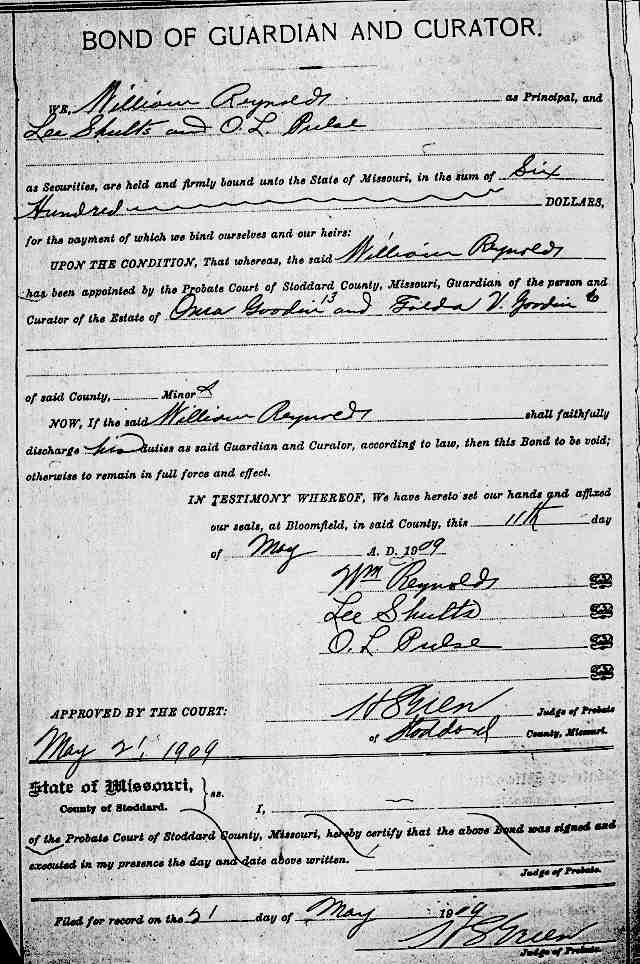 BOND OF GUARDIAN AND CURATOR.
WE, William Reynolds as Principal, and
Lee Shults and O. L. Pulse
as Securities, are held and firmly bound unto the State of Missouri, in the sum of Six
Hundred DOLLARS,
for the payment of which we bind ourselves and our heirs:
UPON THE CONDITION, That whereas, the said William Reynolds
has been appointed by the Probate Court of Stoddard County, Missouri, Guardian of the person and
Curator of the Estate of Goodin 13 and V. Goodin 6
of said County, Minors
NOW, If the said William Reynolds shall faithfully
discharge his duties as said Guardian and Curator, according to law, then this Bond to be void;
otherwise to remain in full force and effect.
IN TESTIMONY WHEREOF, We have hereto set our hands and affixed
our seals, at Bloomfield, in said County, this 11th day
of May A. D. 1909
Wm Reynolds
Lee Shults
O. L Pulse
APPROVED BY THE COURT: Judge of Probate
May 21, 1909 of Stoddard County, Missouri.
State of Missouri, ss.
County of Stoddard. I,
of the Probate Court of Stoddard County, Missouri, hereby certify that the above Bond was signed and
executed in my presence the day and date above written.
Judge of Probate.
Filed for record on the 21 day of May 1909
Judge of Probate.